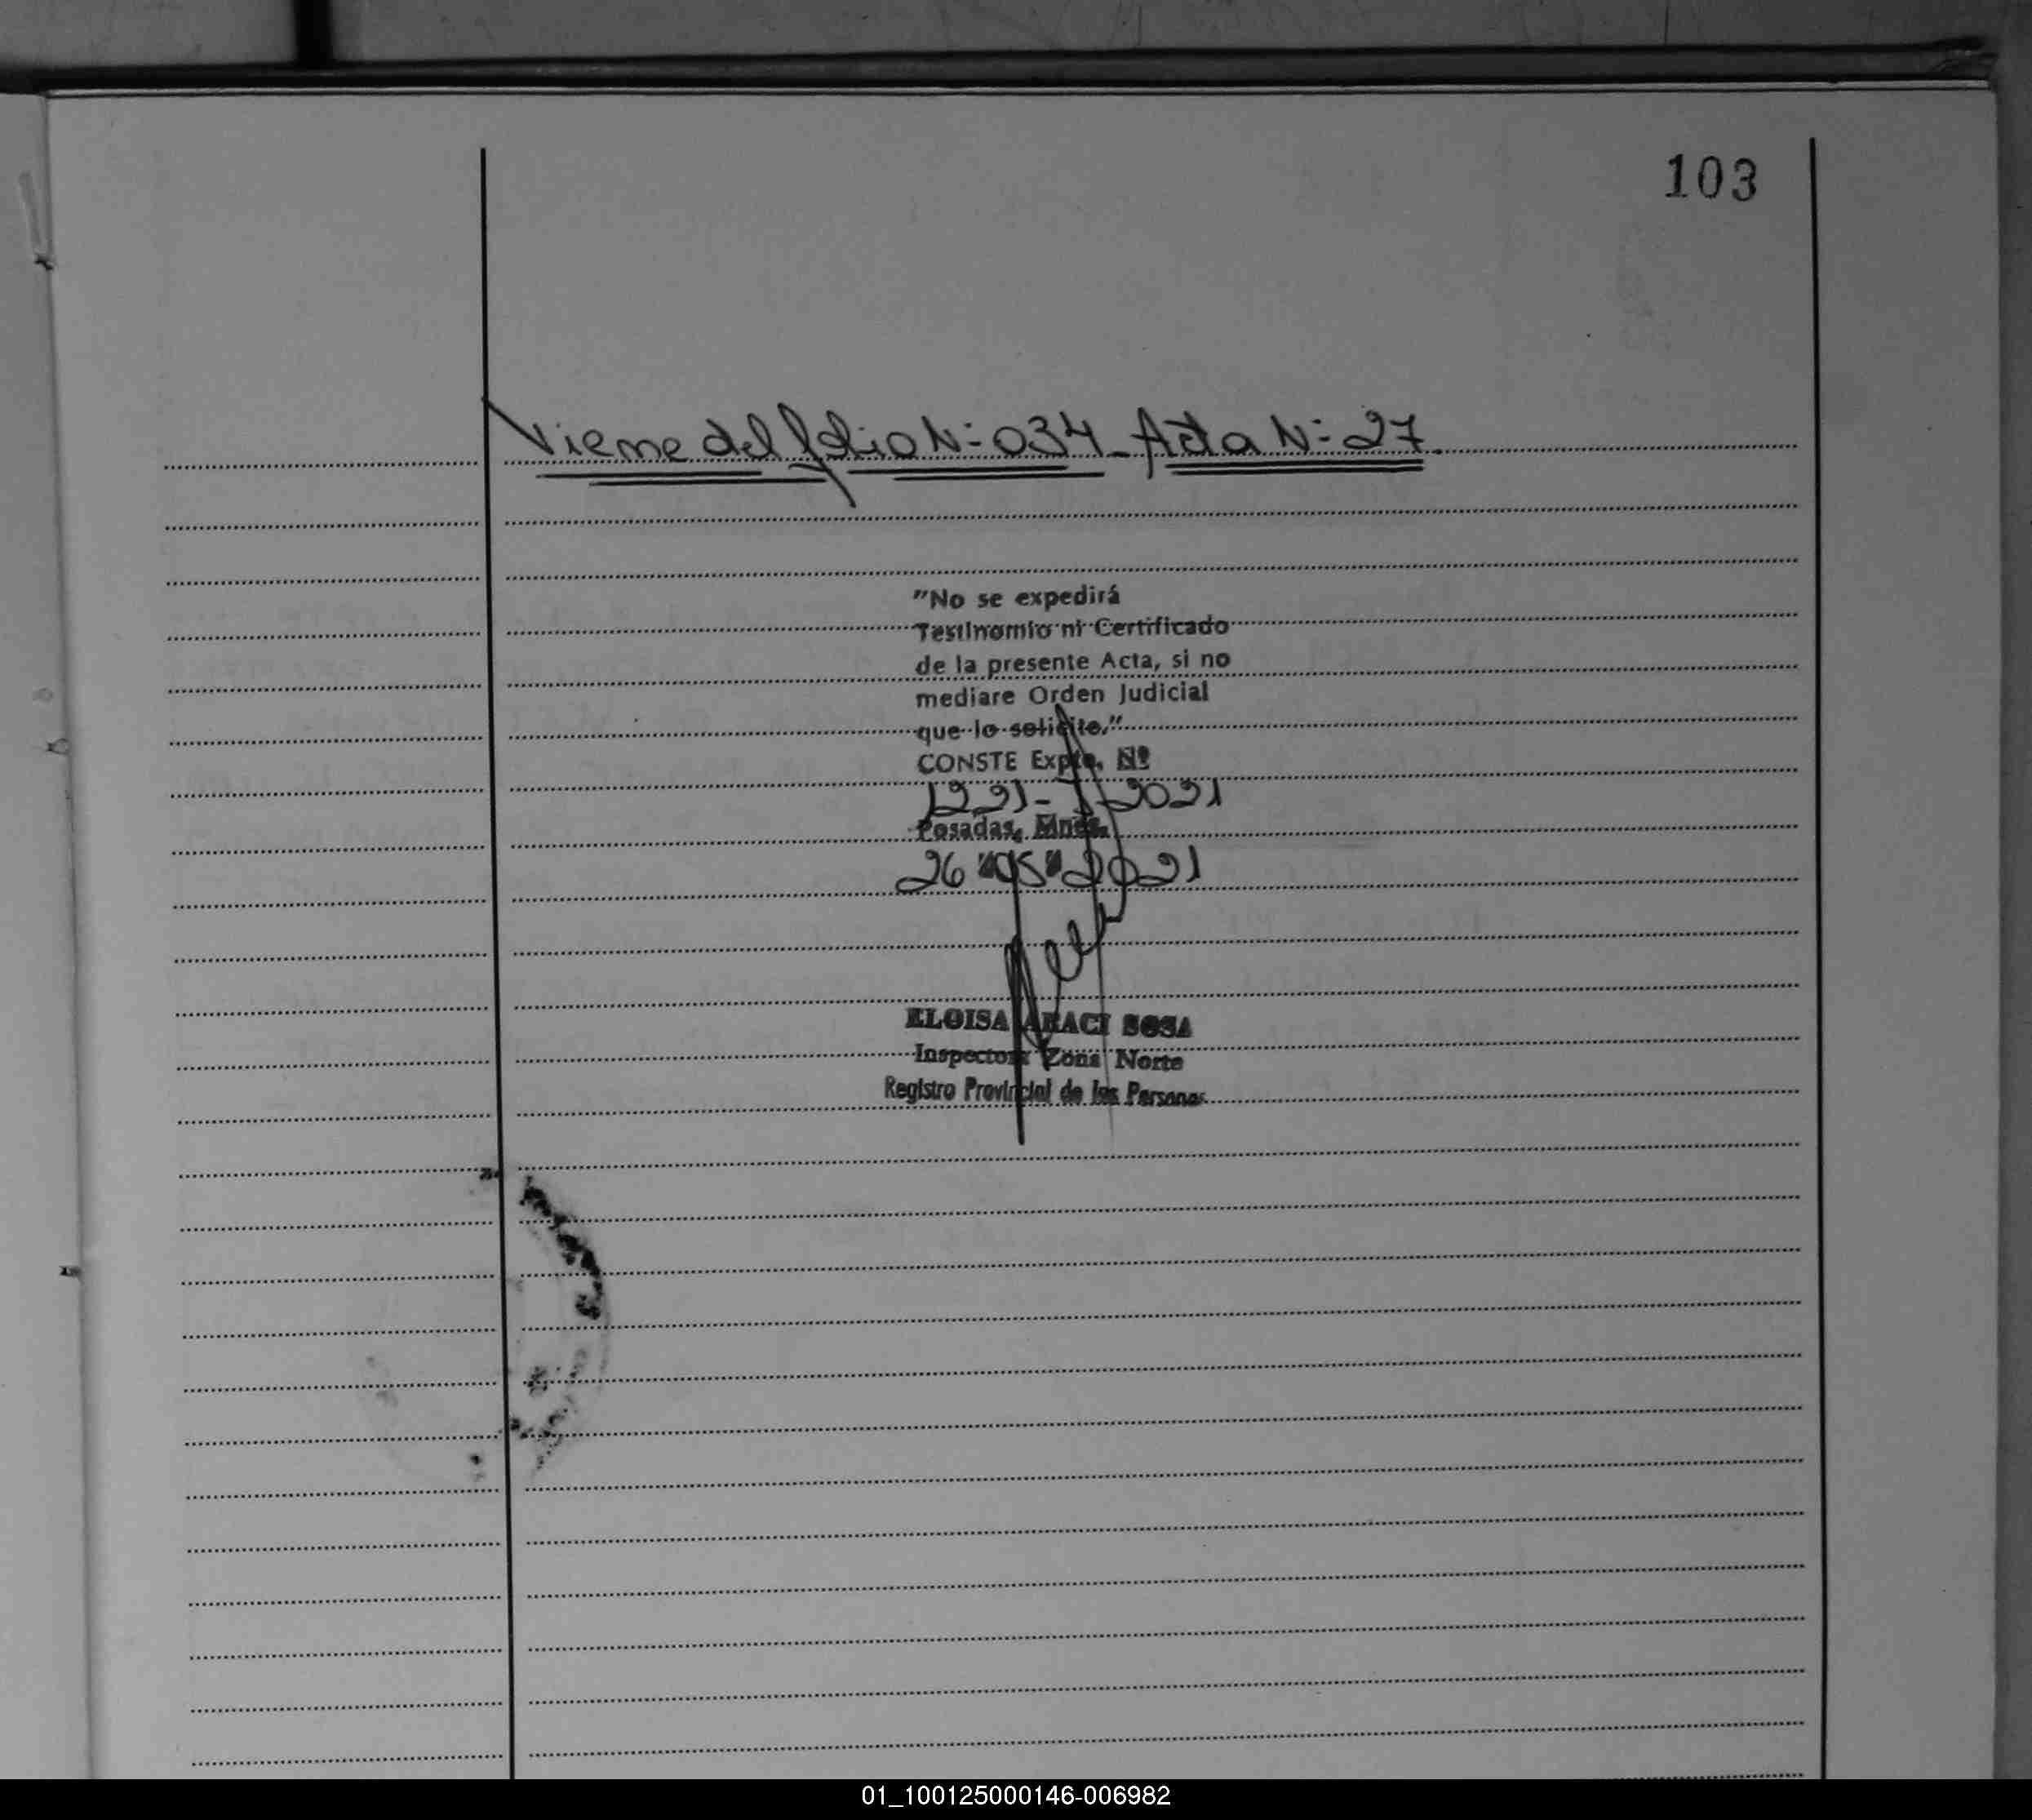 103
Viene del folio N: 034 - Acta N: 27.
"No se expedirá
Testinomio ni Certificado
de la presente Acta, si no
mediare Orden Judicial
que lo solicite."
CONSTE Expte. Nº
1221- J-2021
Posadas, Mnes.
26 05 2021
ELOISA ARACI SOSA
Inspectora Zona Norte
Registro Provincial de las Personas
01_100125000146-006982